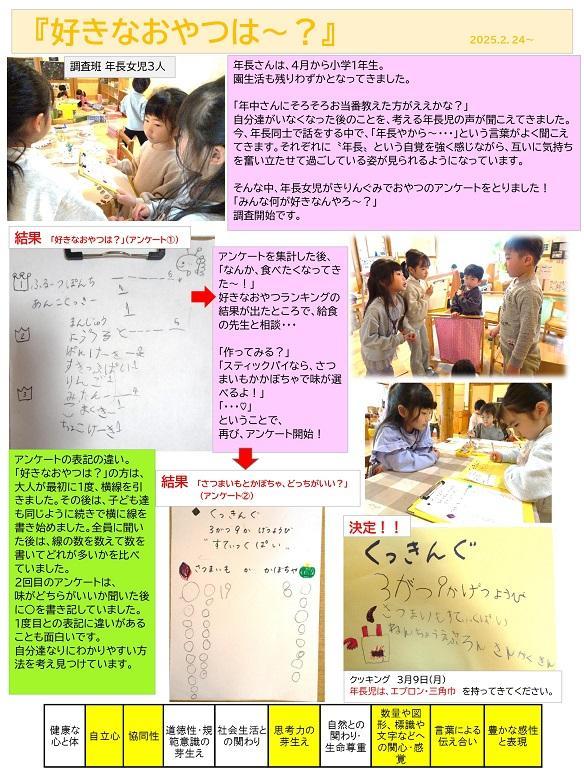 『好きなおやつは～？』
2025.2.24～
調査班 年長女児3人
年長さんは、4月から小学1年生。
園生活も残りわずかとなってきました。
「年中さんにそろそろお当番教えた方がええかな？」
自分達がいなくなった後のことを、考える年長児の声が聞こえてきました。
今、年長同士で話をする中で、「年長やから～・・・」という言葉がよく聞こえ
てきます。それぞれに〝年長〟という自覚を強く感じながら、互いに気持ち
を奮い立たせて過ごしている姿が見られるようになっています。
そんな中、年長女児がきりんぐみでおやつのアンケートをとりました！
「みんな何が好きなんやろ～？」
調査開始です。
結果 「好きなおやつは？」（アンケート①）
1
ふるーつぽんち
あんこくっきー
2
まんじゅう
ぱんけーき
りんご
3
みたん
ちょこけーき
アンケートを集計した後、
「なんか、食べたくなってき
た～！」
好きなおやつランキングの
結果が出たところで、給食
の先生と相談・・・
「作ってみる？」
「スティックパイなら、さつ
まいもかかぼちゃで味が選
べるよ！」
「・・・♡」
ということで、
再び、アンケート開始！
アンケートの表記の違い。
「好きなおやつは？」の方は、
大人が最初に1度、横線を引
きました。その後は、子ども達
も同じように続きで横に線を
書き始めました。全員に聞い
た後は、線の数を数えて数を
書いてどれが多いかを比べ
ていました。
2回目のアンケートは、
味がどちらがいいか聞いた後
に○を書き記していました。
1度目との表記に違いがある
ことも面白いです。
自分達なりにわかりやすい方
法を考え見つけています。
結果 「さつまいもとかぼちゃ、どっちがいい？」
（アンケート②）
◆ くっきんぐ
3がつ9かげつようび
"すてぃっくぱい"
さつまいも か かぼちゃ
19 8
決定！！
くっきんぐ
3がつ9かげつようび
さつまいもすてぃっくぱい
ねんちょうえぷろん さんかくきん
クッキング 3月9日(月)
年長児は、エプロン・三角巾 を持ってきてください。
健康な
心と体
自立心
協同性
道徳性・規
範意識の
芽生え
社会生活と
の関わり
思考力の
芽生え
自然との
関わり・
生命尊重
数量や図
形、標識や
文字などへ
の関心・感
覚
言葉による
伝え合い
豊かな感性
と表現